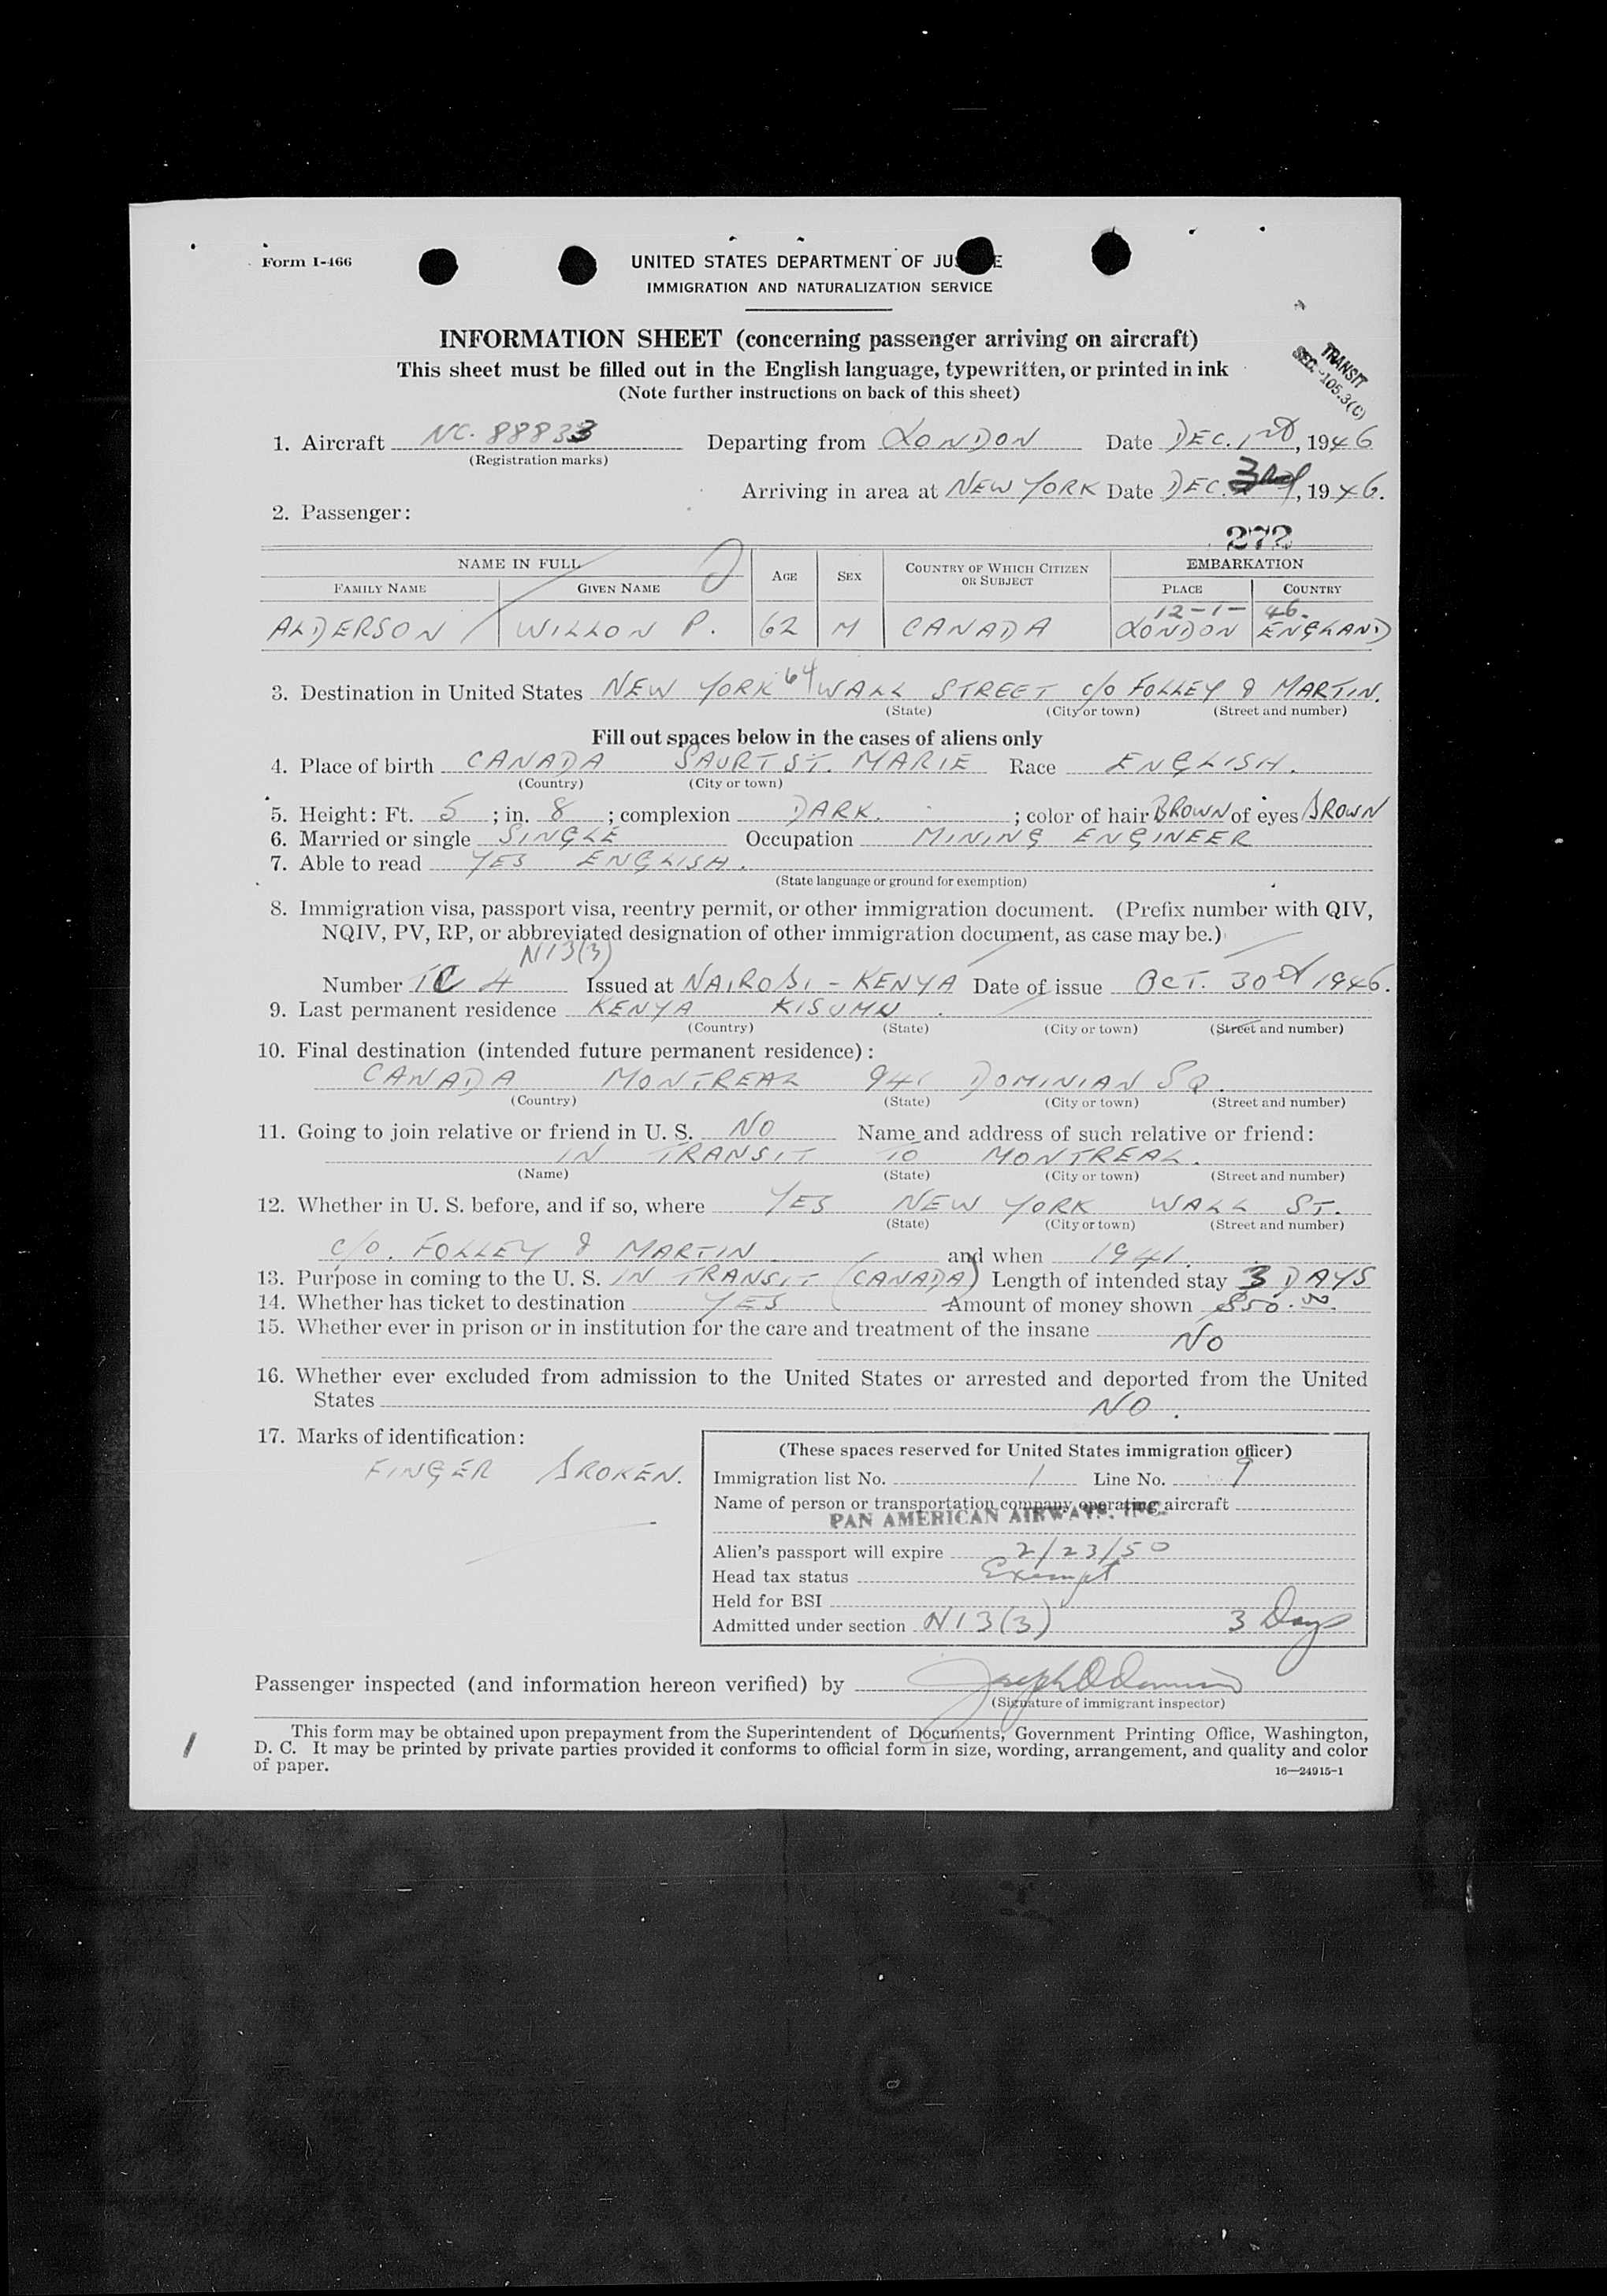 Form I-466
UNITED STATES DEPARTMENT OF JU E
IMMIGRATION AND NATURALIZATION SERVICE
INFORMATION SHEET (concerning passenger arriving on aircraft)
This sheet must be filled out in the English language, typewritten, or printed in ink
(Note further instructions on back of this sheet)
TRANSIT
SEC.-105.3(C)
1. Aircraft NC. 88833 Departing from LONDON Date DEC. 1, 1946
(Registration marks)
Arriving in area at NEW YORK Date DEC. 3rd, 1946.
2. Passenger:
272
NAME IN FULL AGE SEX COUNTRY OF WHICH CITIZEN OR SUBJECT EMBARKATION
FAMILY NAME GIVEN NAME PLACE COUNTRY
12-1-46.
ALDERSON WILLON P. 62 M CANADA LONDON ENGLAND
3. Destination in United States NEW YORK 64 WALL STREET c/o FOLLEY & MARTIN.
(State) (City or town) (Street and number)
Fill out spaces below in the cases of aliens only
4. Place of birth CANADA SAURT ST. MARIE Race ENGLISH.
(Country) (City or town)
5. Height: Ft. 5; in. 8; complexion DARK.; color of hair BROWN of eyes BROWN
6. Married or single SINGLE Occupation MINING ENGINEER
7. Able to read YES ENGLISH.
(State language or ground for exemption)
8. Immigration visa, passport visa, reentry permit, or other immigration document. (Prefix number with QIV,
NQIV, PV, RP, or abbreviated designation of other immigration document, as case may be.)
N13(3)
Number 4 Issued at NAIROBI - KENYA Date of issue OCT. 30 1946.
9. Last permanent residence KENYA KISUMU.
(Country) (State) (City or town) (Street and number)
10. Final destination (intended future permanent residence):
CANADA MONTREAL 941 DOMINIAN SQ.
(Country) (State) (City or town) (Street and number)
11. Going to join relative or friend in U. S. NO Name and address of such relative or friend:
IN TRANSIT TO MONTREAL.
(Name) (State) (City or town) (Street and number)
12. Whether in U. S. before, and if so, where YES NEW YORK WALL ST.
(State) (City or town) (Street and number)
c/o. FOLLEY & MARTIN and when 1941.
13. Purpose in coming to the U. S. IN TRANSIT (CANADA) Length of intended stay 3 DAYS
14. Whether has ticket to destination YES Amount of money shown $50.00
15. Whether ever in prison or in institution for the care and treatment of the insane NO
16. Whether ever excluded from admission to the United States or arrested and deported from the United
States NO.
17. Marks of identification:
FINGER BROKEN.
(These spaces reserved for United States immigration officer)
Immigration list No. 1 Line No. 9
Name of person or transportation company operating aircraft
PAN AMERICAN AIRWAYS, INC.
Alien's passport will expire 2/23/50
Head tax status Exempt
Held for BSI
Admitted under section N13(3) 3 Days
Passenger inspected (and information hereon verified) by Joseph
(Signature of immigrant inspector)
This form may be obtained upon prepayment from the Superintendent of Documents, Government Printing Office, Washington,
D. C. It may be printed by private parties provided it conforms to official form in size, wording, arrangement, and quality and color
of paper.
16—24915-1